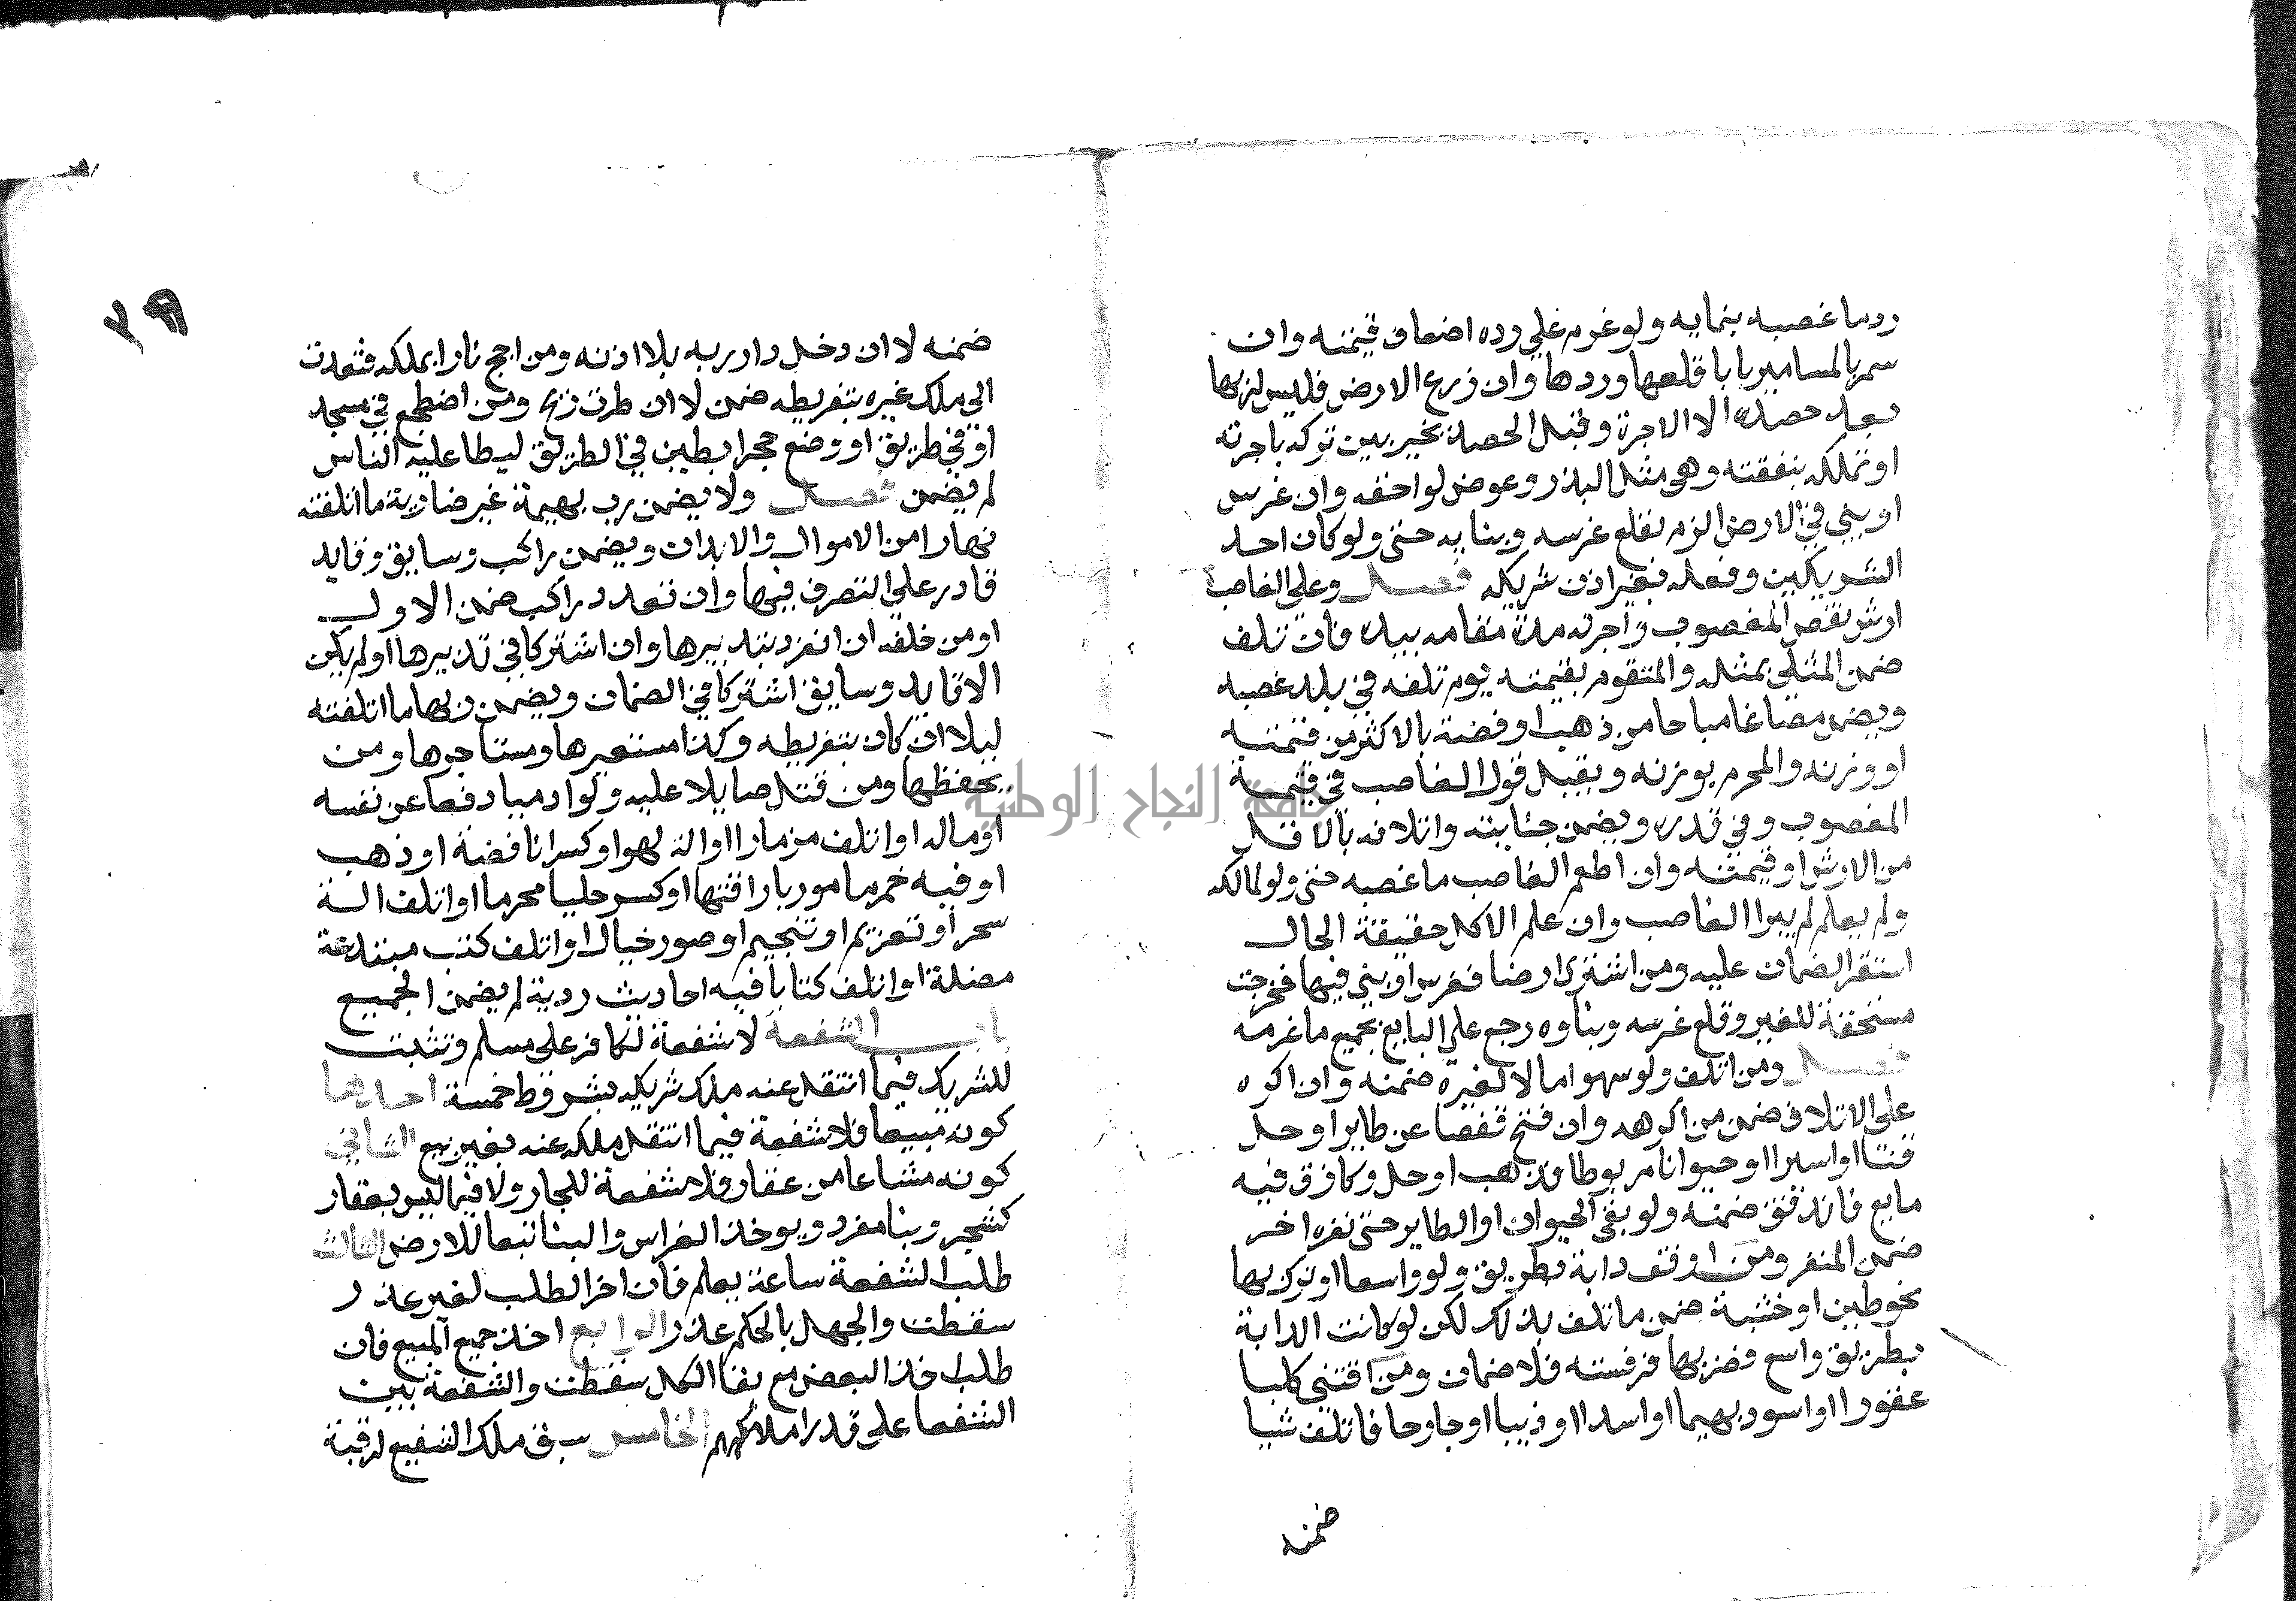 رد ما غصبه بنمايه ولو غرم علي رده اضعاف قيمته وان
سمر بالمسامير بابا قلعها وردها وان زرع الارض فليس لربها
بعد حصده الا الاجرة وقبل الحصد يخير بين تركه باجرته
او تملكه بنفقته وهي مثل البذر وعوض لواحقه وان غرس
او بني في الارض الزم بقلع غرسه وبنايه حتي ولو كان احد
الشريكين وفعله بغير اذن شريكه فصل وعلي الغاصب
ارش نقص المغصوب واجرته مدة مقامه بيده فان تلف
ضمن المثلي بمثله والمتقوم بقيمته يوم تلفه في بلد غصبه
ويضمن مصاغا مباحا من ذهب او فضة بالاكثر من قيمته
او وزنه والمحرم بوزنه ويقبل قول الغاصب في قيمة
المغصوب وفي قدره ويضمن جنايته واتلافه بالاقل
من الارش او قيمته وان اطعم الغاصب ما غصبه حتي ولو لمالكه
ولم يعلم لم يبرا الغاصب وان علم الاكل حقيقة الحال
استقر الضمان عليه ومن اشتري ارضا فغرس او بني فيها فخرجت
مستحقة للغير وقلع غرسه وبناوه رجع علي البايع بجميع ما غرمه
فصل ومن اتلف ولو سهوا مالا لغيره ضمنه وان اكره
علي الاتلاف ضمن من اكرهه وان فتح قفصا عن طاير او حل
قنا او اسيرا او حيوانا مربوطا فذهب او حل وكا زق فيه
مايع فاندفق ضمنه ولو بقي الحيوان او الطاير حتي نفره اخر
ضمن المنفر ومن اوقف دابة بطريق ولو واسعا او ترك بها
نحو طين او خشبة ضمن ما تلف بذلك لكن لو كانت الدابة
بطريق واسع فضربها فرفسته فلا ضمان ومن اقتني كلبا
عقورا او اسود بهيما او اسدا او ذيبا او جارحا فاتلف شيا
ضمنه
٣٩
ضمنه لا ان دخل دار ربه بلا اذنه ومن اجج نارا بملكه فتعدت
الي ملك غيره بتفريطه ضمن لا ان طرت ريح ومن اضطجع في مسجد
او في طريق او وضع حجرا بطين في الطريق ليطا عليه الناس
لم يضمن فصل ولا يضمن رب بهيمة غير ضارية ما اتلفته
نهارا من الاموال والابدان ويضمن راكب وسايق وقايد
قادر علي التصرف فيها وان تعدد راكب ضمن الاول
او من خلفه ان انفرد بتدبيرها وان اشتركا في تدبيرها او لم يكن
الا قايد وسايق اشتركا في الضمان ويضمن ربها ما اتلفته
ليلا ان كان بتفريطه وكذا مستعيرها ومستاجرها ومن
يحفظها ومن قتل صايلا عليه ولو ادميا دفعا عن نفسه
او ماله او اتلف مزمارا او الة لهو او كسر انا فضة او ذهب
او فيه خمر مامور باراقتها او كسر حليا محرما او اتلف الة
سحر او تعزيم او تنجيم او صور خيال او اتلف كتب مبتدعة
مضلة او اتلف كتابا فيه احاديث ردية لم يضمن الجميع
باب الشفعة لا شفعة لكافر علي مسلم وتثبت
للشريك فيما انتقل عنه ملك شريكه بشروط خمسة احدها
كونه مبيعا فلا شفعة فيما انتقل ملكه عنه بغير بيع الثاني
كونه مشاعا من عقار فلا شفعة للجار ولا فيما ليس بعقار
كشجر وبنا مفرد ويوخذ الغراس والبنا تبعا للارض الثالث
طلب الشفعة ساعة يعلم فان اخر الطلب لغير عذر
سقطت والجهل بالحكم عذر الرابع اخذ جميع المبيع فان
طلب اخذ البعض مع بقا الكل سقطت والشفعة بين
الشفعا علي قدر املاكهم الخامس سبق ملك الشفيع لرقبة
جامعة النجاح الوطنية